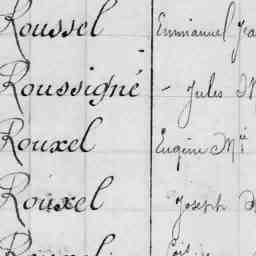 Roussel Emmanuel
Roussigné - Jules
Rouxel Eugène M
Rouxel Joseph